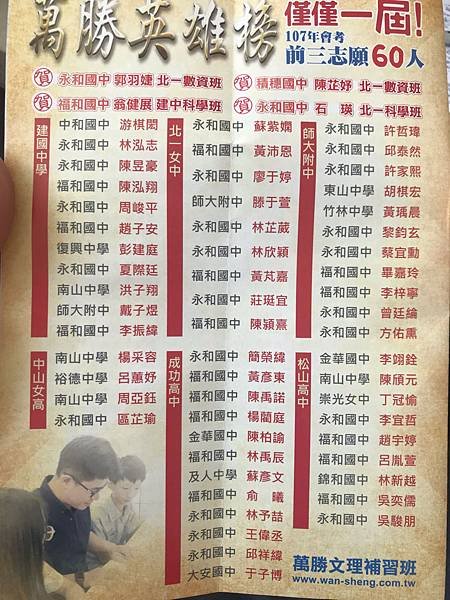 萬勝英雄榜
僅僅一屆!
107年會考
前三志願60人
賀 永和國中 郭羽婕 北一數資班
賀 積穗國中 陳芷妤 北一數資班
賀 福和國中 翁健展 建中科學班
賀 永和國中 石 瑛 北一科學班
建國中學
中和國中 游棋閎
永和國中 林泓志
永和國中 陳昱豪
福和國中 陳泓翔
永和國中 周峻平
福和國中 趙子安
復興中學 彭建庭
永和國中 夏際廷
南山中學 洪子翔
師大附中 戴子焜
福和國中 李振緯
北一女中
永和國中 蘇紫嫻
福和國中 黃沛恩
永和國中 廖于婷
師大附中 滕于萱
永和國中 林芷葳
永和國中 林欣穎
福和國中 黃芃嘉
永和國中 莊珽宜
福和國中 陳潁熹
師大附中
永和國中 許哲瑋
永和國中 邱泰然
永和國中 許家熙
東山中學 胡棋宏
竹林中學 黃瑀晨
永和國中 黎鈞玄
永和國中 蔡宜勳
福和國中 畢嘉玲
福和國中 李梓寧
永和國中 曾廷綸
永和國中 方佑熏
中山女高
南山中學 楊采容
裕德中學 呂蕙妤
南山中學 周亞鈺
永和國中 區芷瑜
成功高中
永和國中 簡榮緯
福和國中 黃彥東
福和國中 陳禹諾
福和國中 楊蘭庭
金華國中 陳柏諭
福和國中 林禹辰
及人中學 蘇彥文
福和國中 俞 曦
永和國中 林予喆
永和國中 王偉丞
永和國中 邱祥緯
大安國中 于子博
松山高中
金華國中 李翊銓
南山中學 陳頎元
崇光女中 丁冠愉
永和國中 李宜哲
福和國中 趙宇婷
福和國中 呂胤萱
錦和國中 林新越
福和國中 吳奕儒
永和國中 吳駿朋
萬勝文理補習班
www.wan-sheng.com.tw